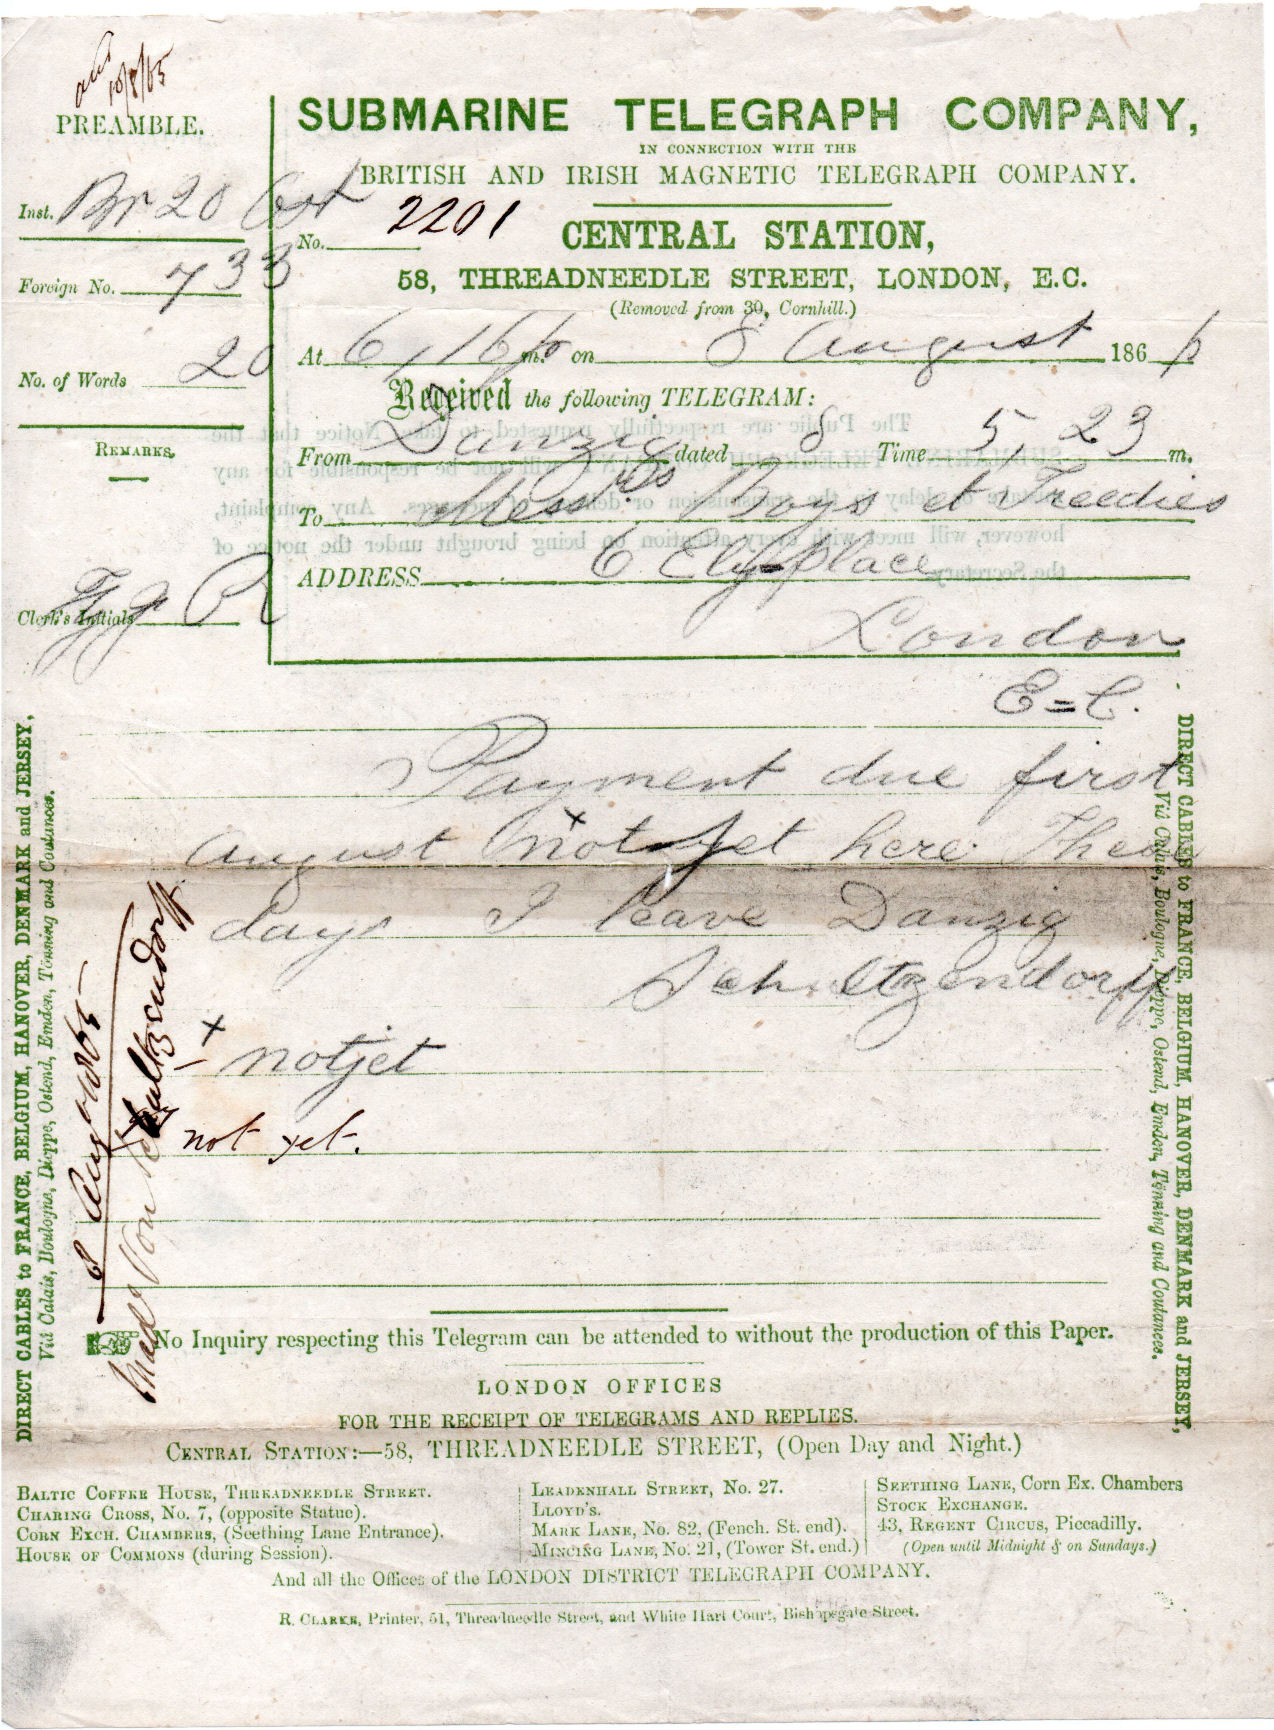 10/8/65
PREAMBLE.
Inst. Br 20 Ost
Foreign No. 733
No. of Words 20
REMARKS.
Clerk's Initials
SUBMARINE TELEGRAPH COMPANY,
IN CONNECTION WITH THE
BRITISH AND IRISH MAGNETIC TELEGRAPH COMPANY.
No. 2201
CENTRAL STATION,
58, THREADNEEDLE STREET, LONDON, E.C.
(Removed from 30, Cornhill.)
At 6,16 p m. on 8 August 186
Received the following TELEGRAM:
From Danzig dated 8 Time 5,23 m.
To Messrs Boys et Tweedies
ADDRESS 6 Ely-place
London
E=C.
Payment due first
august notjet here These
days I leave Danzig
Schultzendorff
x notjet
not yet.
8 Aug 1865
Mad Von Schultzendorff
DIRECT CABLES to FRANCE, BELGIUM, HANOVER, DENMARK and JERSEY,
Viâ Calais, Boulogne, Dieppe, Ostend, Emden, Tönning and Coutances.
DIRECT CABLES to FRANCE, BELGIUM, HANOVER, DENMARK and JERSEY,
Viâ Calais, Boulogne, Dieppe, Ostend, Emden, Tönning and Coutances.
No Inquiry respecting this Telegram can be attended to without the production of this Paper.
LONDON OFFICES
FOR THE RECEIPT OF TELEGRAMS AND REPLIES.
CENTRAL STATION:—58, THREADNEEDLE STREET, (Open Day and Night.)
BALTIC COFFEE HOUSE, THREADNEEDLE STREET.
CHARING CROSS, No. 7, (opposite Statue).
CORN EXCH. CHAMBERS, (Seething Lane Entrance).
HOUSE OF COMMONS (during Session).
LEADENHALL STREET, No. 27.
LLOYD'S.
MARK LANE, No. 82, (Fench. St. end).
MINCING LANE, No. 21, (Tower St. end.)
SEETHING LANE, Corn Ex. Chambers
STOCK EXCHANGE.
43, REGENT CIRCUS, Piccadilly.
(Open until Midnight & on Sundays.)
And all the Offices of the LONDON DISTRICT TELEGRAPH COMPANY.
R. CLARKE, Printer, 51, Threadneedle Street, and White Hart Court, Bishopsgate Street.